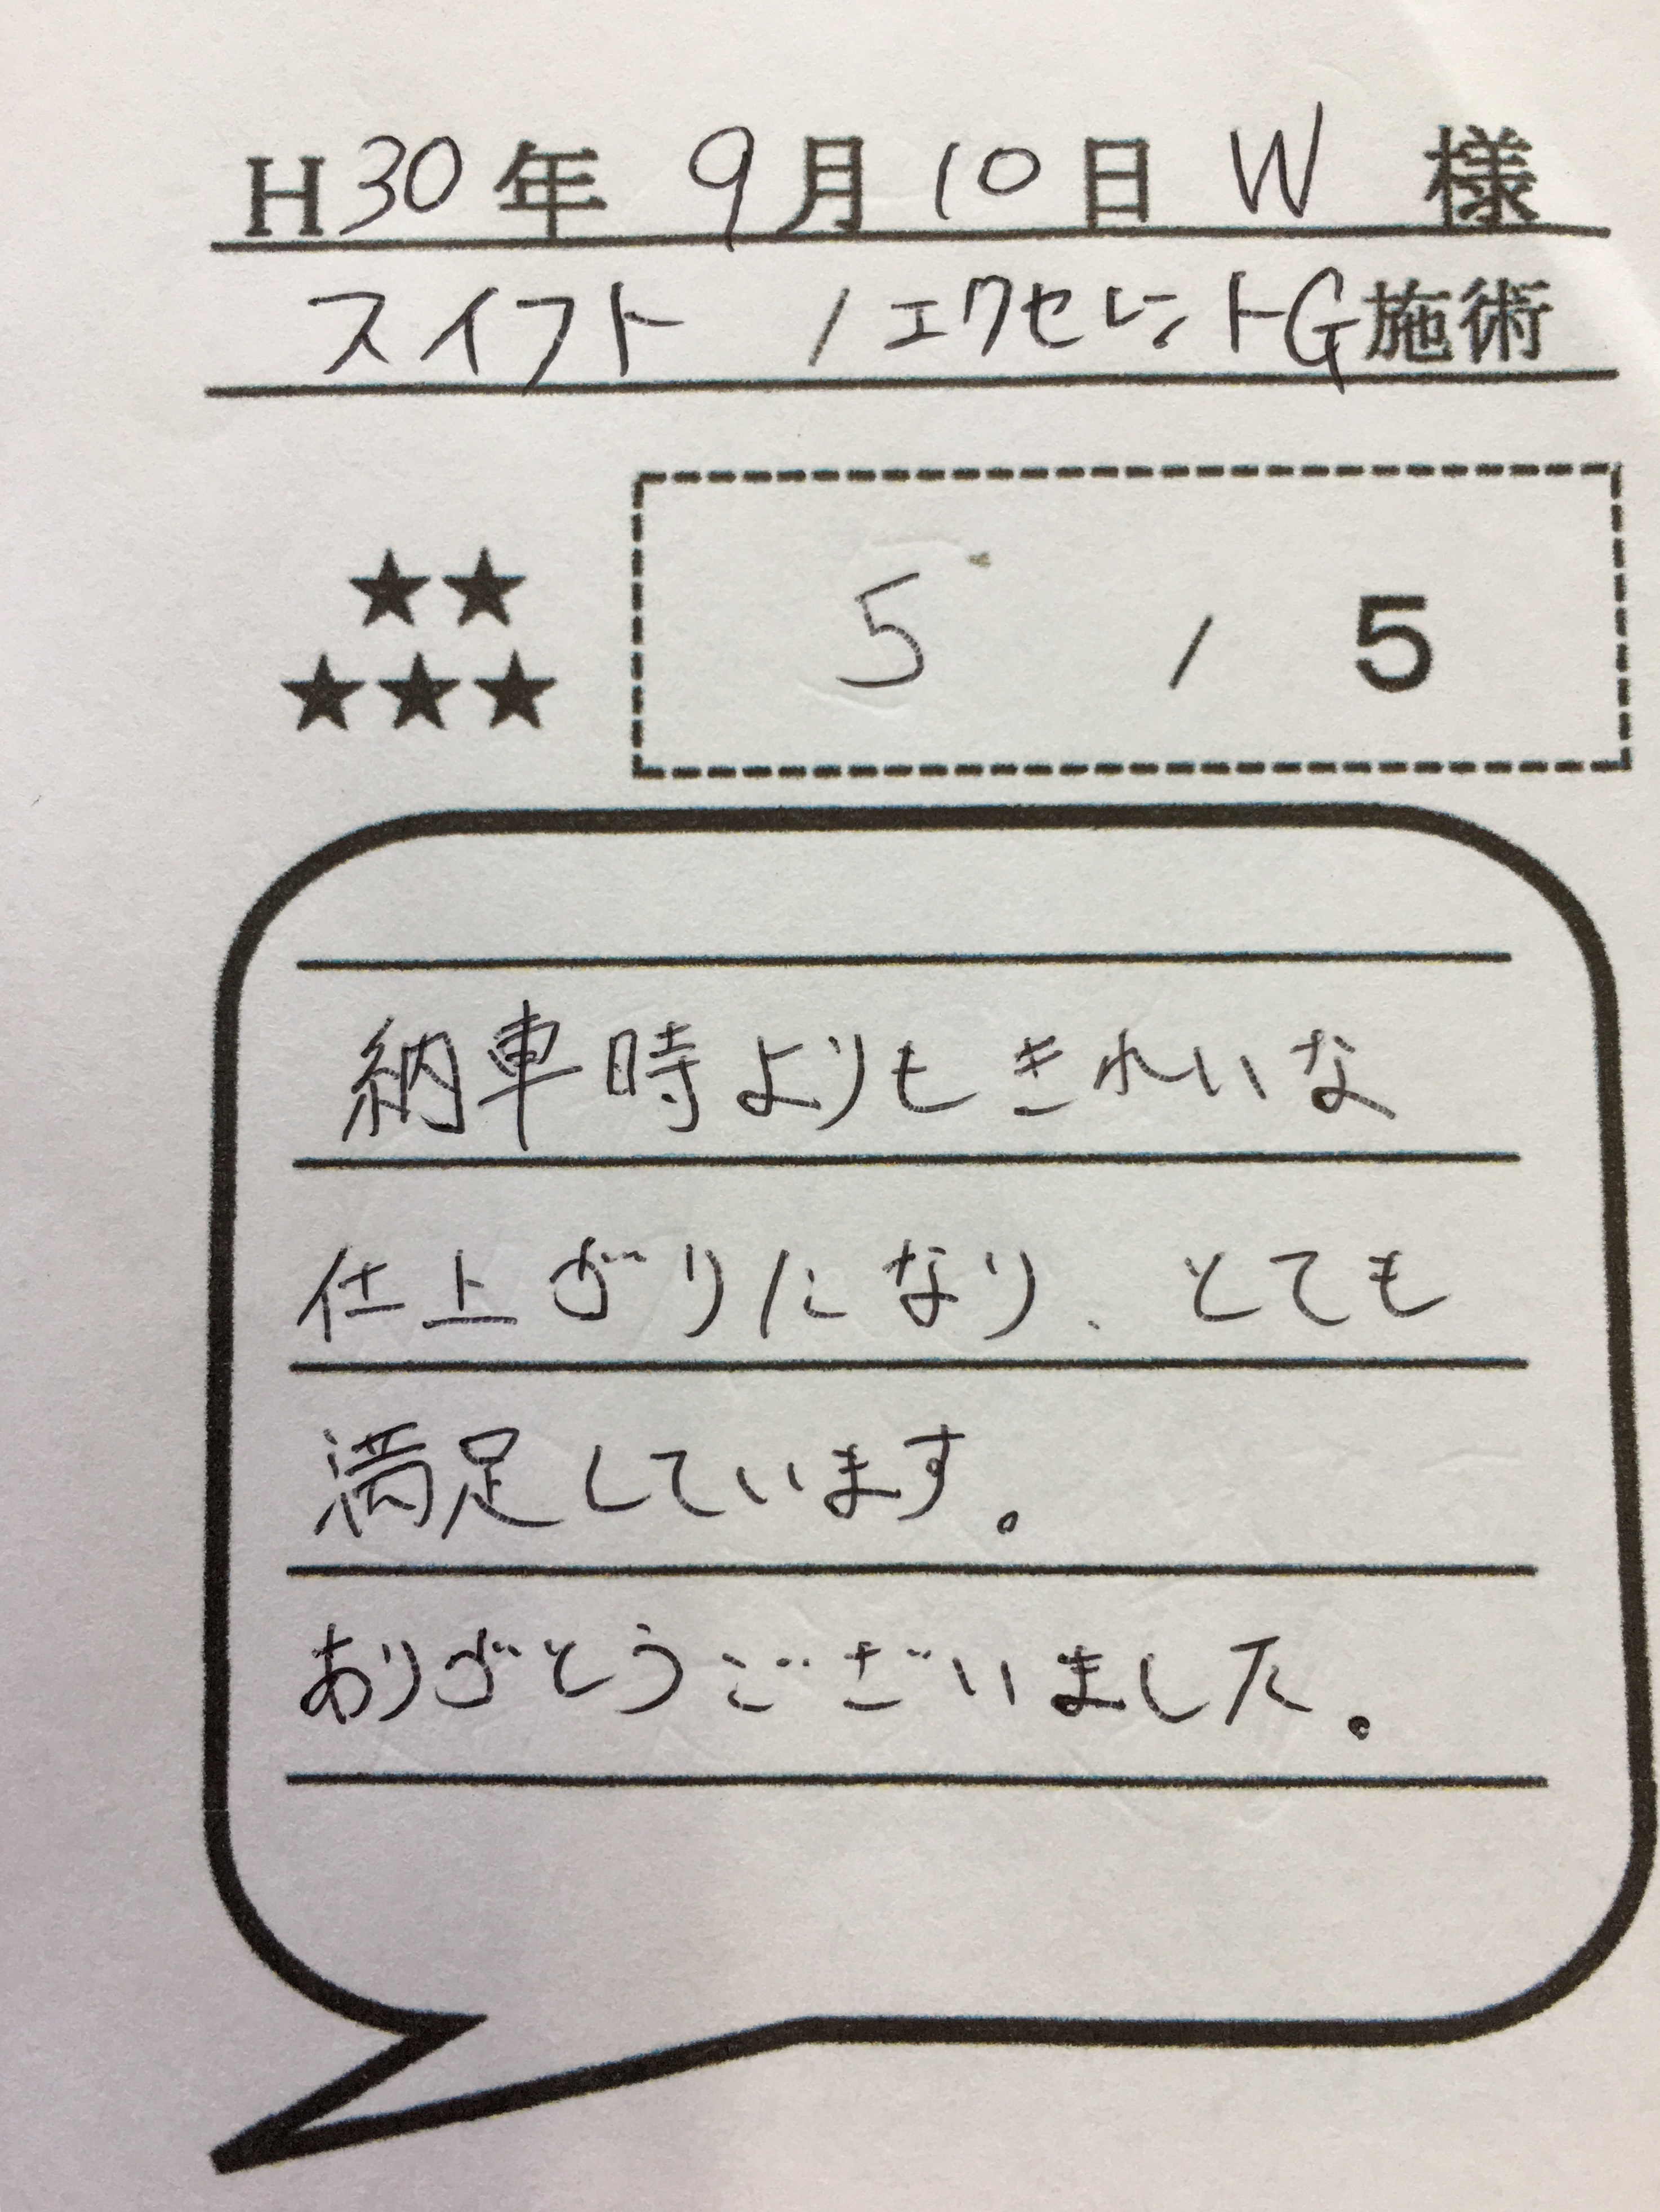 H30年 9月10日 W 様
スイフト / エクセレントG施術
★★
★★★
5 / 5
納車時よりもきれいな
仕上がりになり、とても
満足しています。
ありがとうございました。